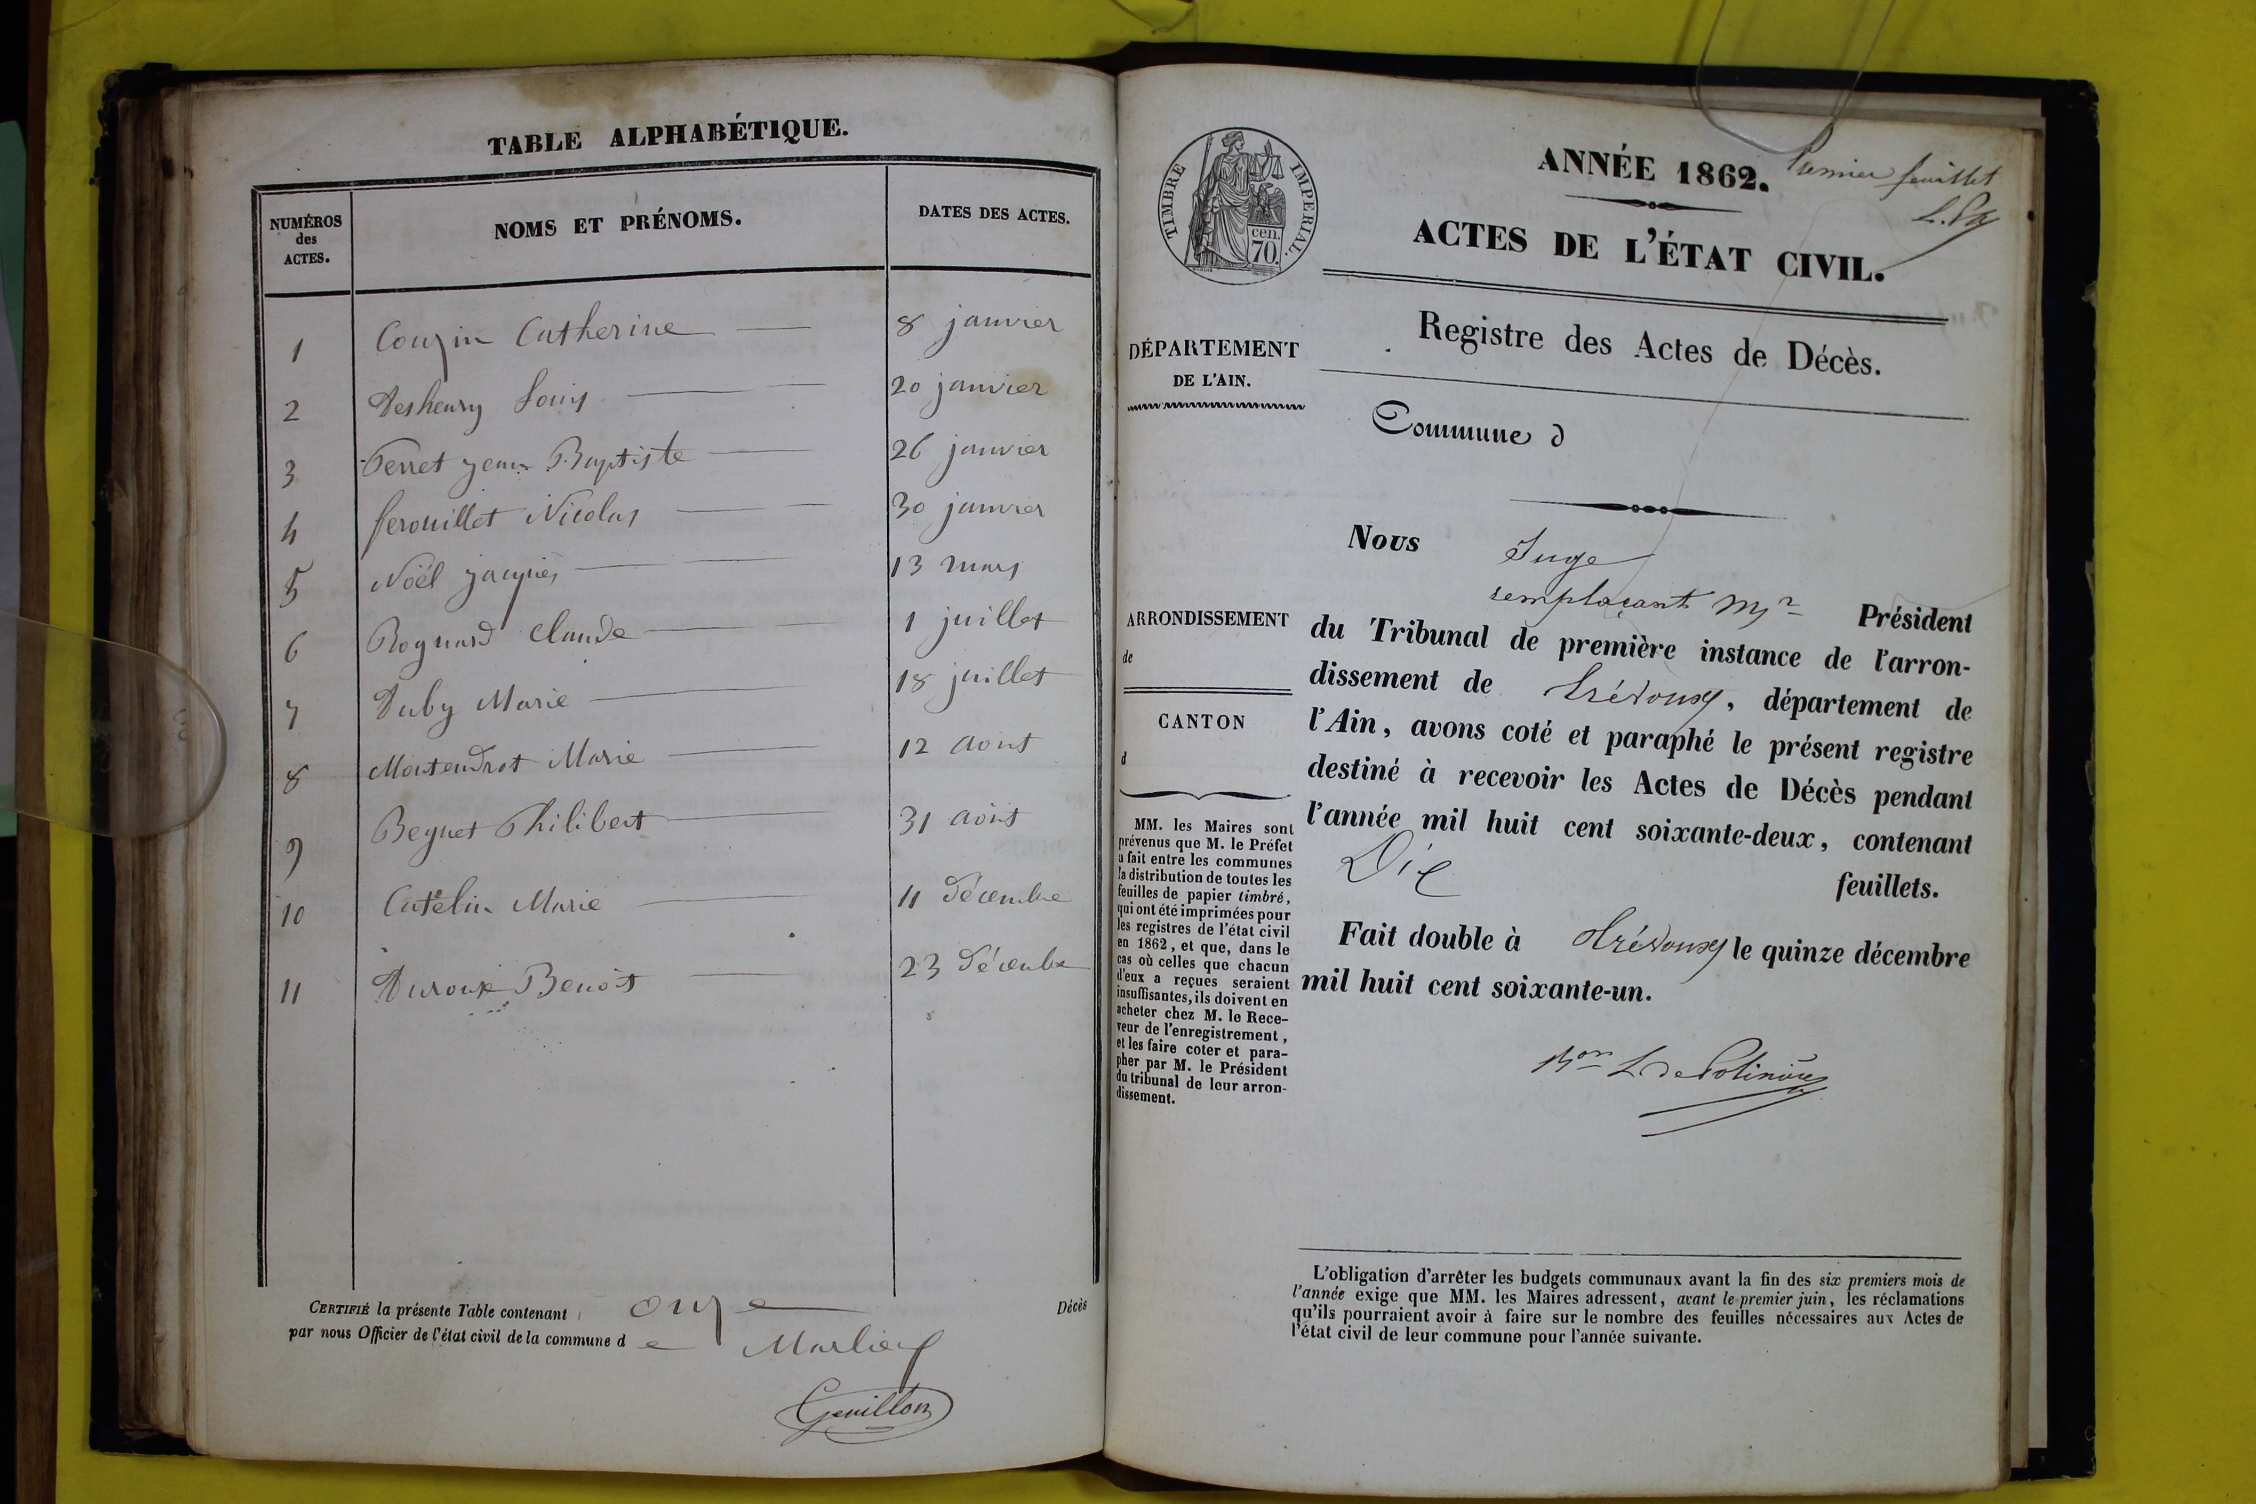 TABLE ALPHABÉTIQUE.
NUMÉROS des ACTES. NOMS ET PRÉNOMS. DATES DES ACTES.
1 Couzin Catherine 8 janvier
2 Desheury Louis 20 janvier
3 Perret jean Baptiste 26 janvier
4 ferouillet Nicolas 30 janvier
5 Noël jacques 13 mars
6 Rognard Claude 1 juillet
7 Duby Marie 18 juillet
8 Montendrot Marie 12 aout
9 Beguet Philibert 31 août
10 Catelin Marie 11 décembre
11 Duroux Benoît 23 décembre
CERTIFIÉ la présente Table contenant onze Décès
par nous Officier de l'état civil de la commune d e Marlieux
Genillon
TIMBRE IMPERIAL.
cen.
70.
ANNÉE 1862.
Premier feuillet
ACTES DE L'ÉTAT CIVIL.
Registre des Actes de Décès.
DÉPARTEMENT
DE L'AIN.
Commune d
ARRONDISSEMENT
de
CANTON
d
MM. les Maires sont
prévenus que M. le Préfet
a fait entre les communes
la distribution de toutes les
feuilles de papier timbré,
qui ont été imprimées pour
les registres de l'état civil
en 1862, et que, dans le
cas où celles que chacun
d'eux a reçues seraient
insuffisantes, ils doivent en
acheter chez M. le Rece-
veur de l'enregistrement,
et les faire coter et para-
pher par M. le Président
du tribunal de leur arron-
dissement.
Nous Juge
remplaçant Mr Président
du Tribunal de première instance de l'arron-
dissement de Trévoux, département de
l'Ain, avons coté et paraphé le présent registre
destiné à recevoir les Actes de Décès pendant
l'année mil huit cent soixante-deux, contenant
Dix feuillets.
Fait double à Trévoux le quinze décembre
mil huit cent soixante-un.
Bon L de Polinière
L'obligation d'arrêter les budgets communaux avant la fin des six premiers mois de
l'année exige que MM. les Maires adressent, avant le premier juin, les réclamations
qu'ils pourraient avoir à faire sur le nombre des feuilles nécessaires aux Actes de
l'état civil de leur commune pour l'année suivante.